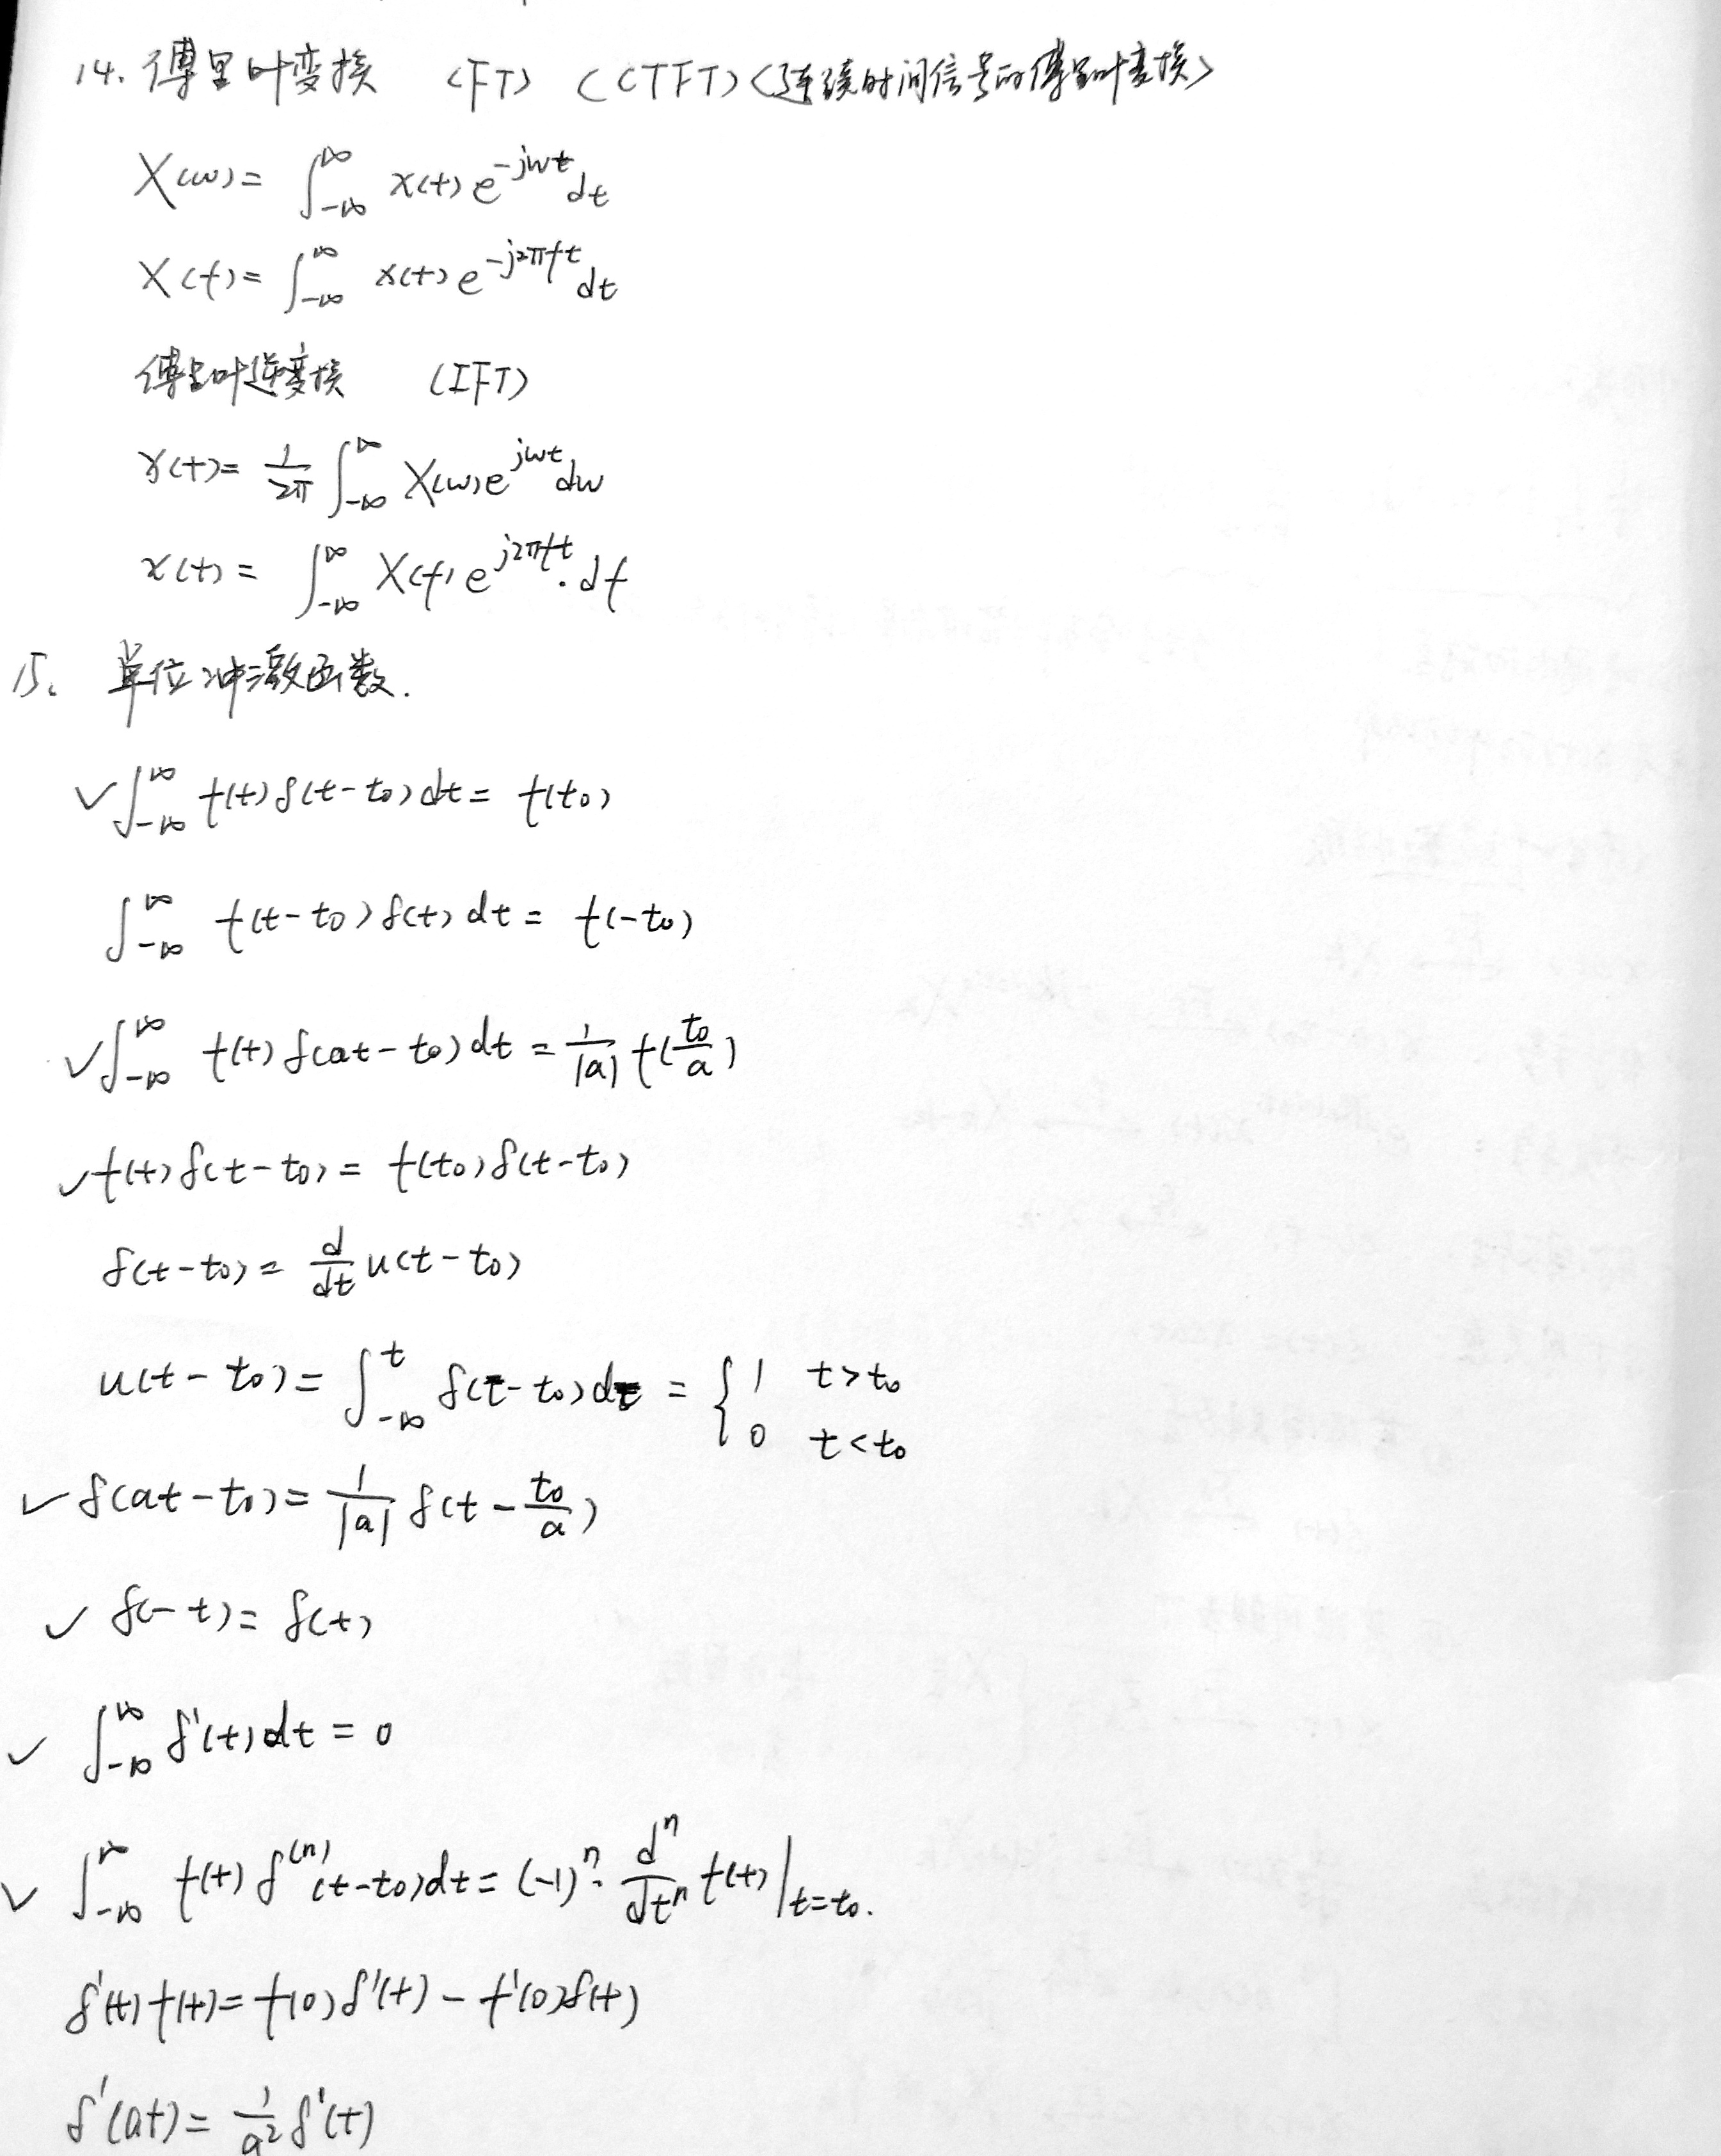 14. 傅里叶变换 (FT) (CTFT) <连续时间信号的傅里叶变换>
X(ω) = ∫_{-∞}^{∞} x(t) e^{-jωt} dt
X(f) = ∫_{-∞}^{∞} x(t) e^{-j2πft} dt
傅里叶逆变换 (IFT)
x(t) = \frac{1}{2π} ∫_{-∞}^{∞} X(ω) e^{jωt} dω
x(t) = ∫_{-∞}^{∞} X(f) e^{j2πft} · df
15. 单位冲激函数.
✓ ∫_{-∞}^{∞} f(t) δ(t-t₀) dt = f(t₀)
∫_{-∞}^{∞} f(t-t₀) δ(t) dt = f(-t₀)
✓ ∫_{-∞}^{∞} f(t) δ(at-t₀) dt = \frac{1}{|a|} f(\frac{t₀}{a})
✓ f(t) δ(t-t₀) = f(t₀) δ(t-t₀)
δ(t-t₀) = \frac{d}{dt} u(t-t₀)
u(t-t₀) = ∫_{-∞}^{t} δ(τ-t₀) dτ = { 1 t>t₀
0 t<t₀
✓ δ(at-t₀) = \frac{1}{|a|} δ(t-\frac{t₀}{a})
✓ δ(-t) = δ(t)
✓ ∫_{-∞}^{∞} δ'(t) dt = 0
✓ ∫_{-∞}^{∞} f(t) δ^{(n)}(t-t₀) dt = (-1)^n · \frac{d^n}{dt^n} f(t) |_{t=t₀}.
δ'(t) f(t) = f(0) δ'(t) - f'(0) δ(t)
δ'(at) = \frac{1}{a²} δ'(t)